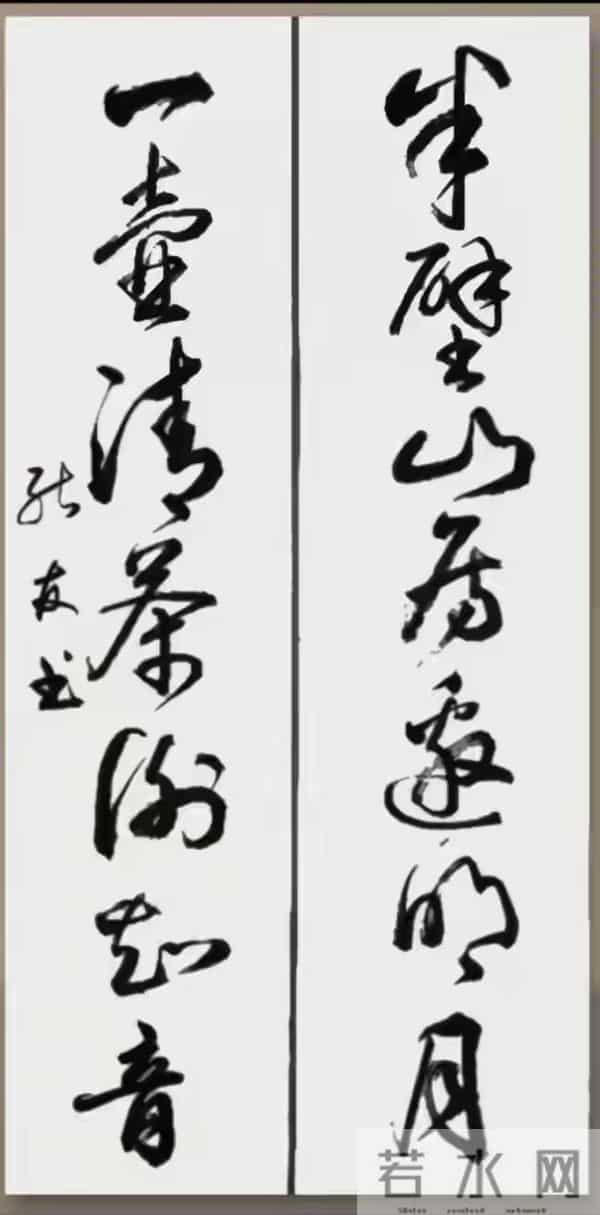 半壁山房邀明月
一壶清茶谢知音
友书
若水网